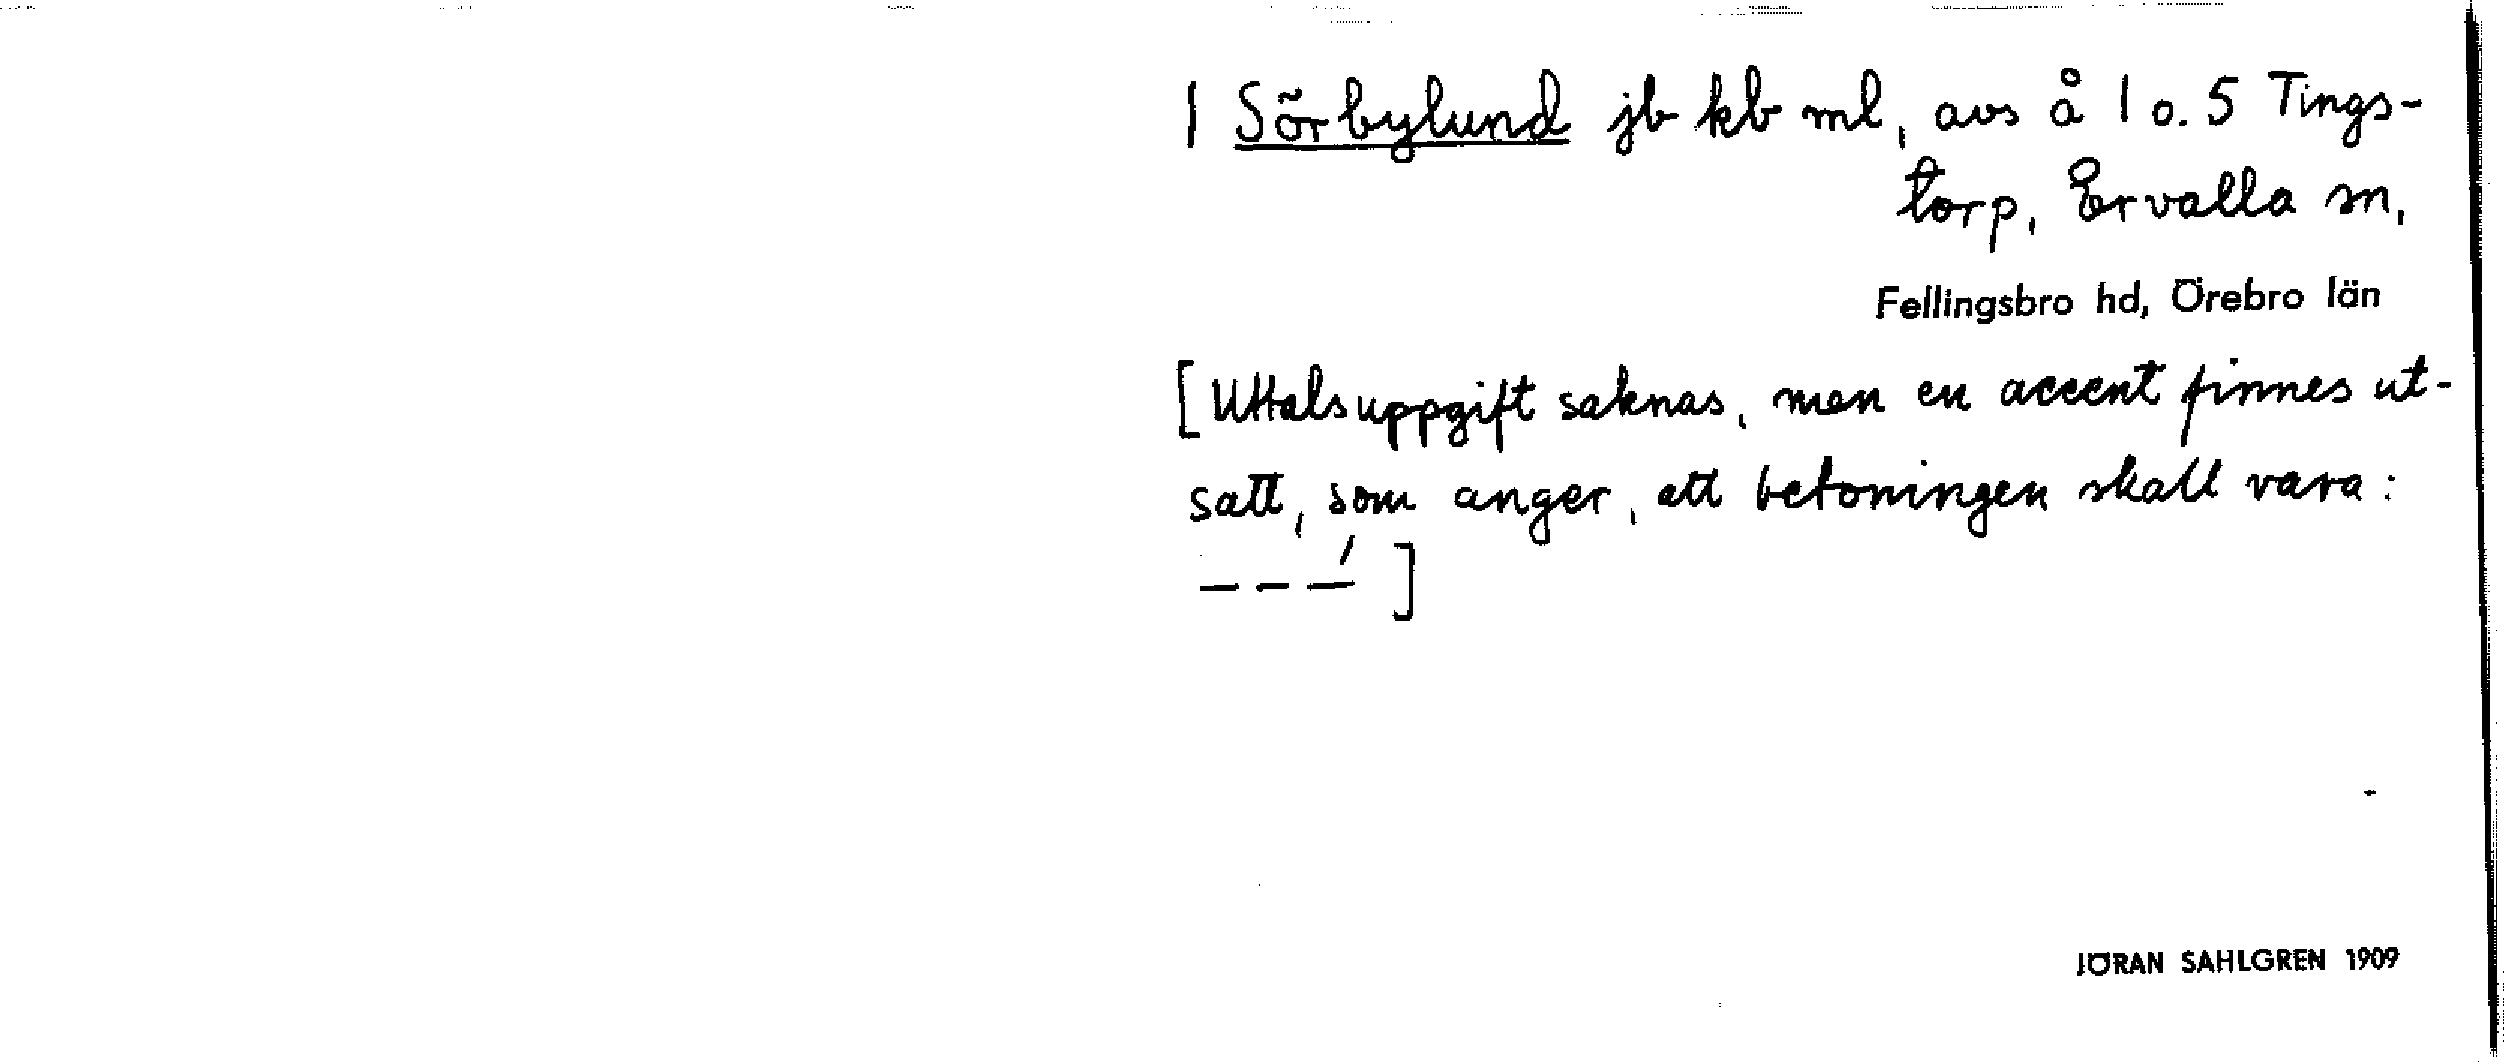 1 Sörbylund jb kb ml, avs å 1 o. 5 Tings-
torp, Ervalla sn,
Fellingsbro hd, Örebro län
[Uttalsuppgift saknas, men en accent finnes ut-
satt, som anger, att betoningen skall vara:
– – –́ ]
JÖRAN SAHLGREN 1909